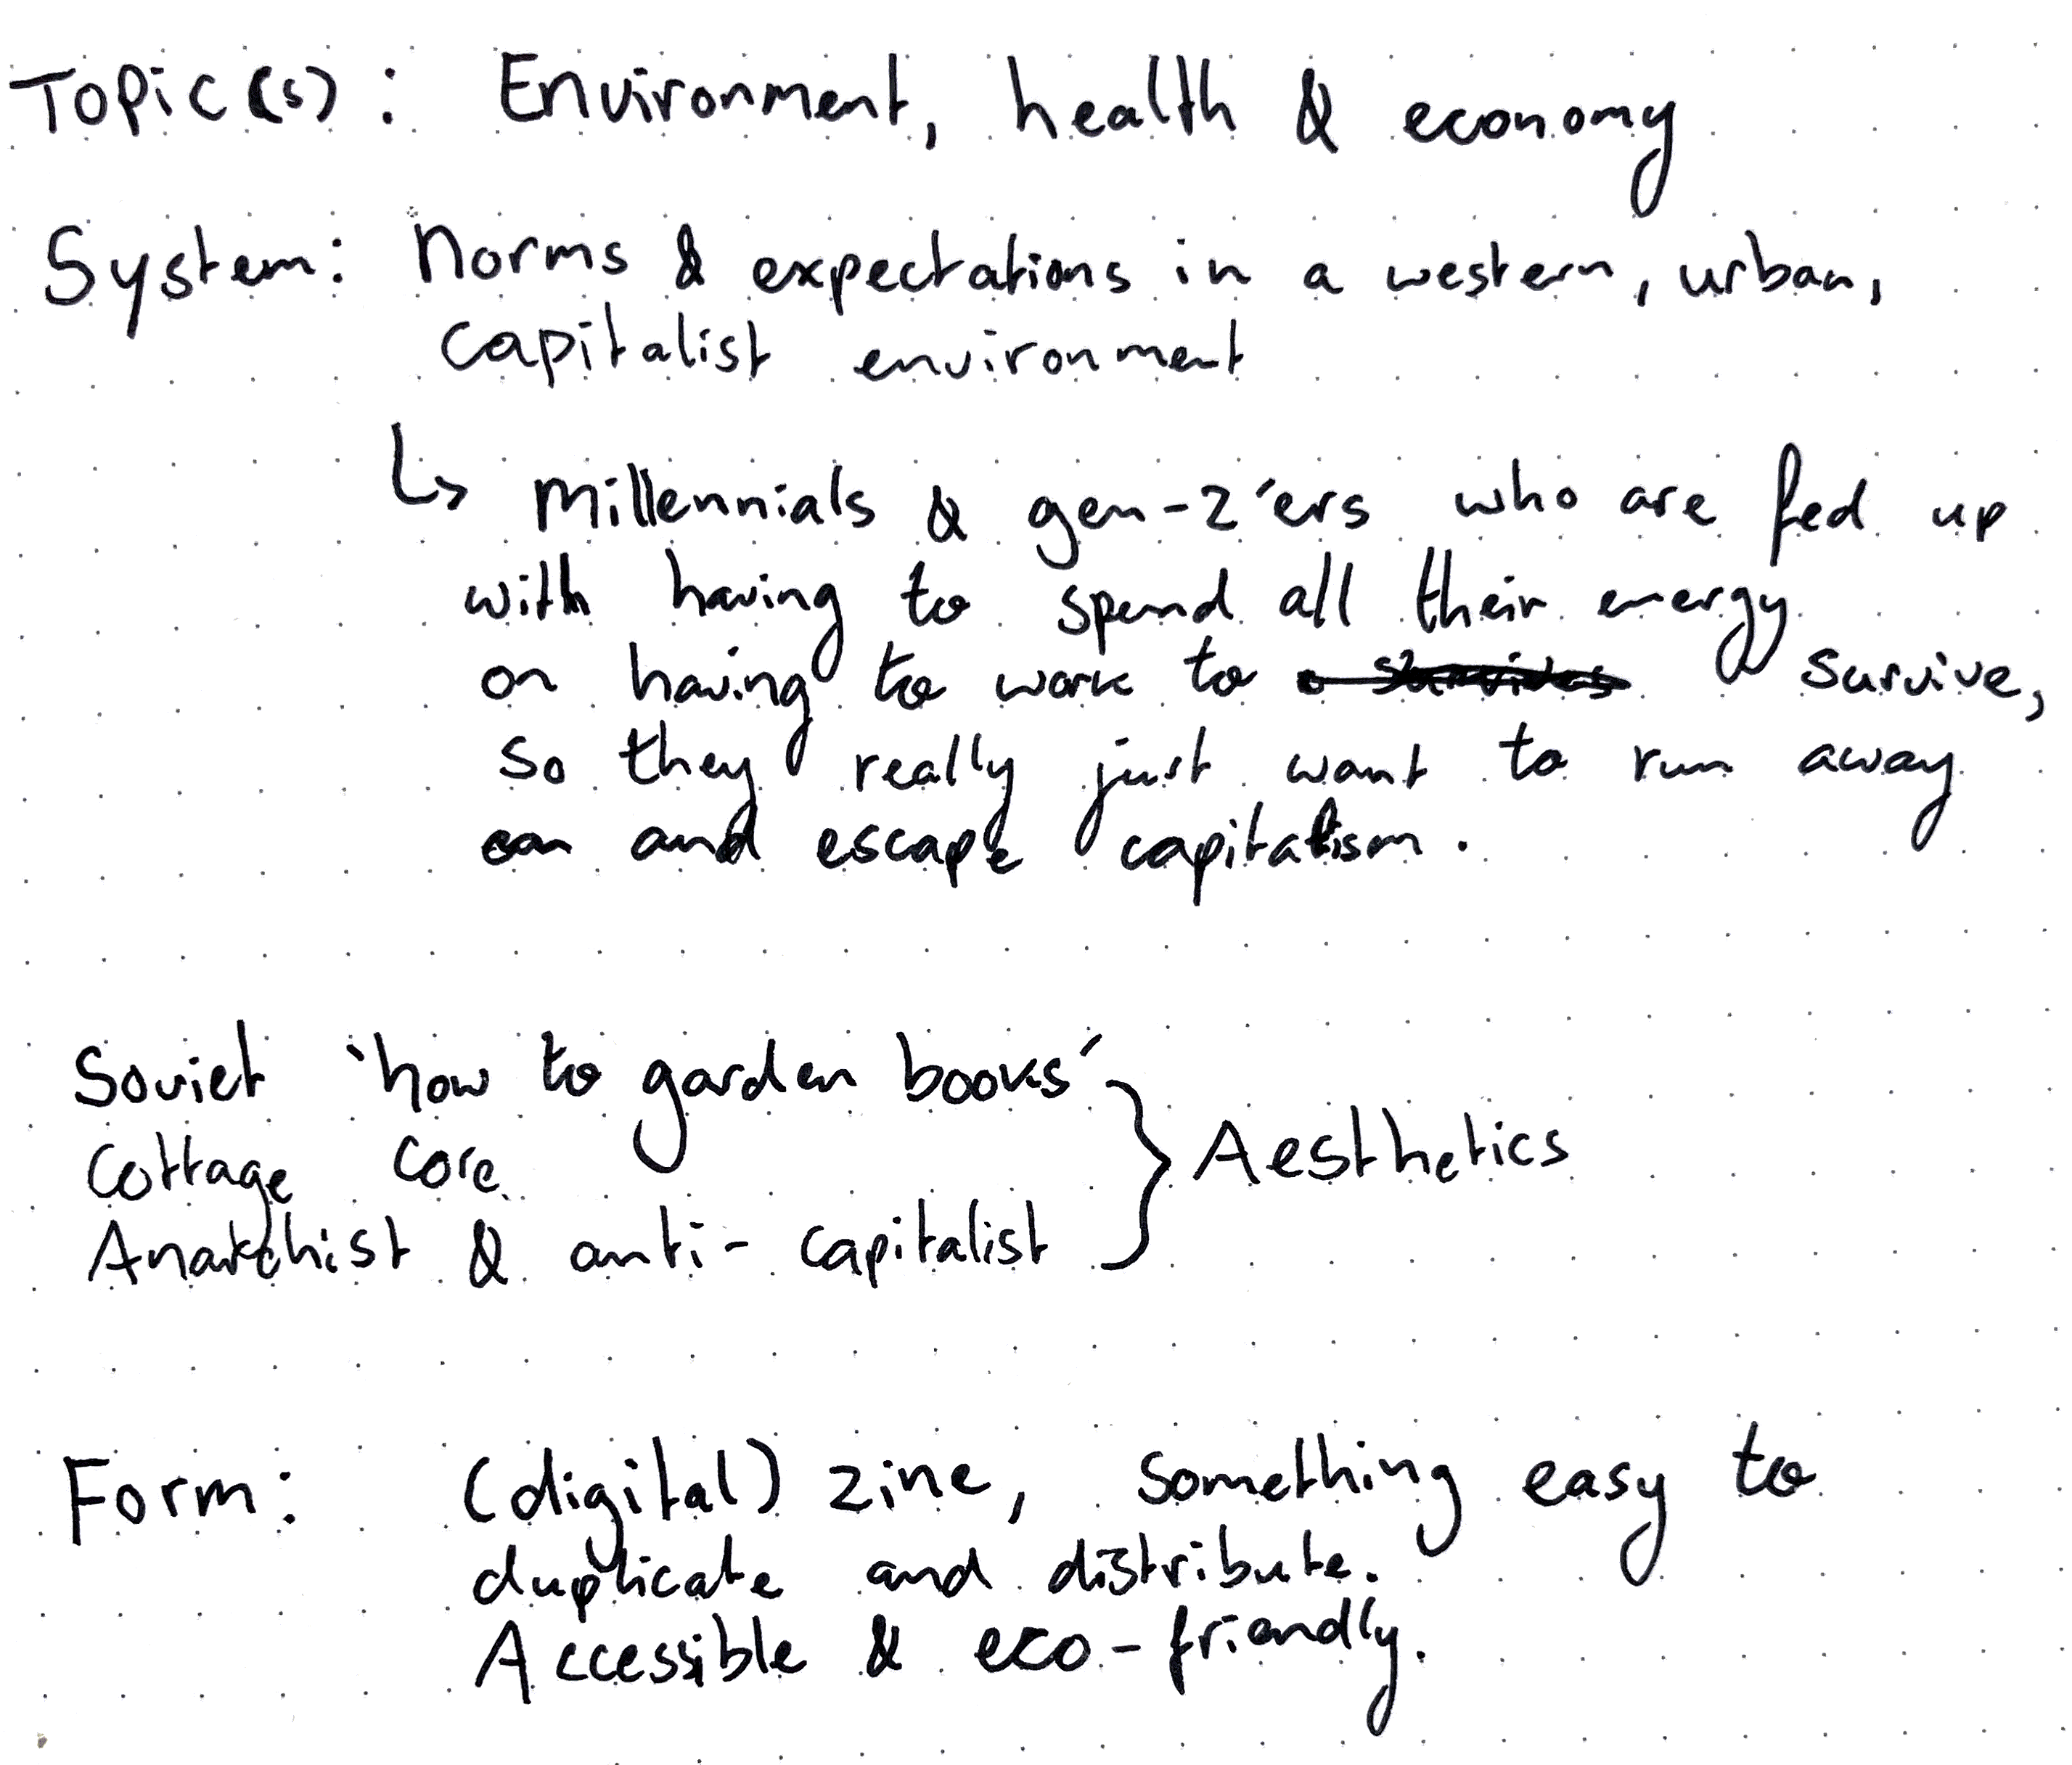 Topic(s): Environment, health & economy
System: Norms & expectations in a western, urban,
capitalist environment
↳ Millennials & gen-z'ers who are fed up
with having to spend all their energy
on having to work to survive,
so they really just want to run away
and escape capitalism.
Soviet 'how to garden books'
Cottage core
Anarchist & anti-capitalist
} Aesthetics
Form: (digital) zine, something easy to
duplicate and distribute.
Accessible & eco-friendly.